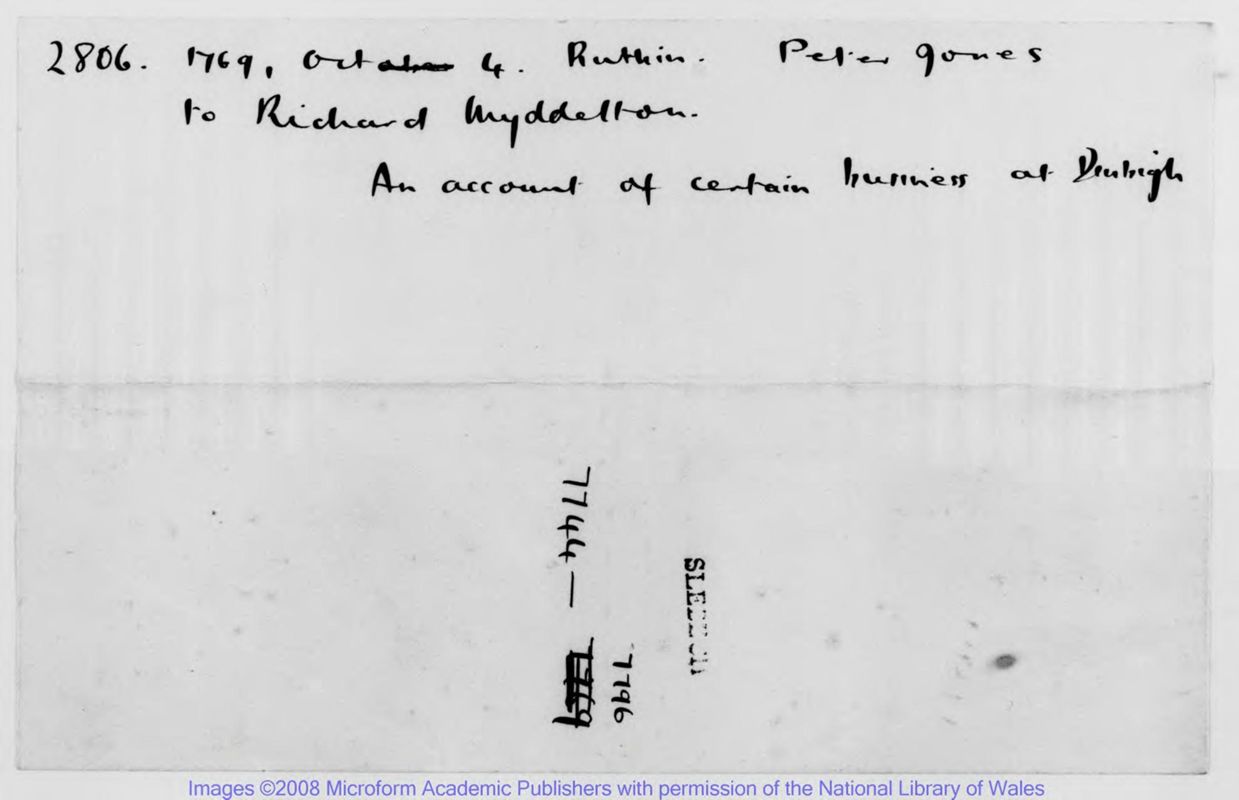 2806. 1769, October 4. Ruthin. Peter Jones
to Richard Myddelton.
An account of certain business at Denbigh
7744 —
7796
Images ©2008 Microform Academic Publishers with permission of the National Library of Wales